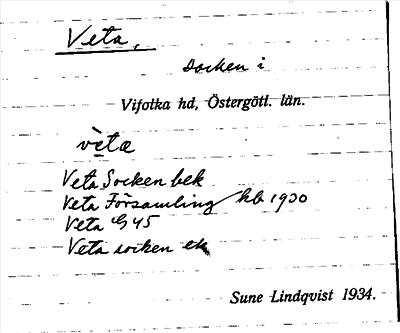 Veta,
socken i
Vifolka hd, Östergötl. län.
vèta
Veta Socken bek
Veta Församling kb 1930
Veta GS 45
Veta socken ek
Sune Lindqvist 1934.